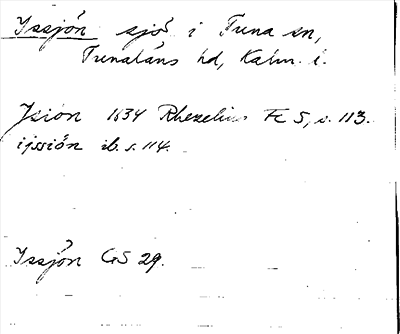 Yssjön sjö i Tuna sn,
Tunaläns hd, Kalm. l.
Ysiön 1634 Rhezelius Fc 5, s. 113.
ijssiön ib. s. 114.
Yssjön GS 29.